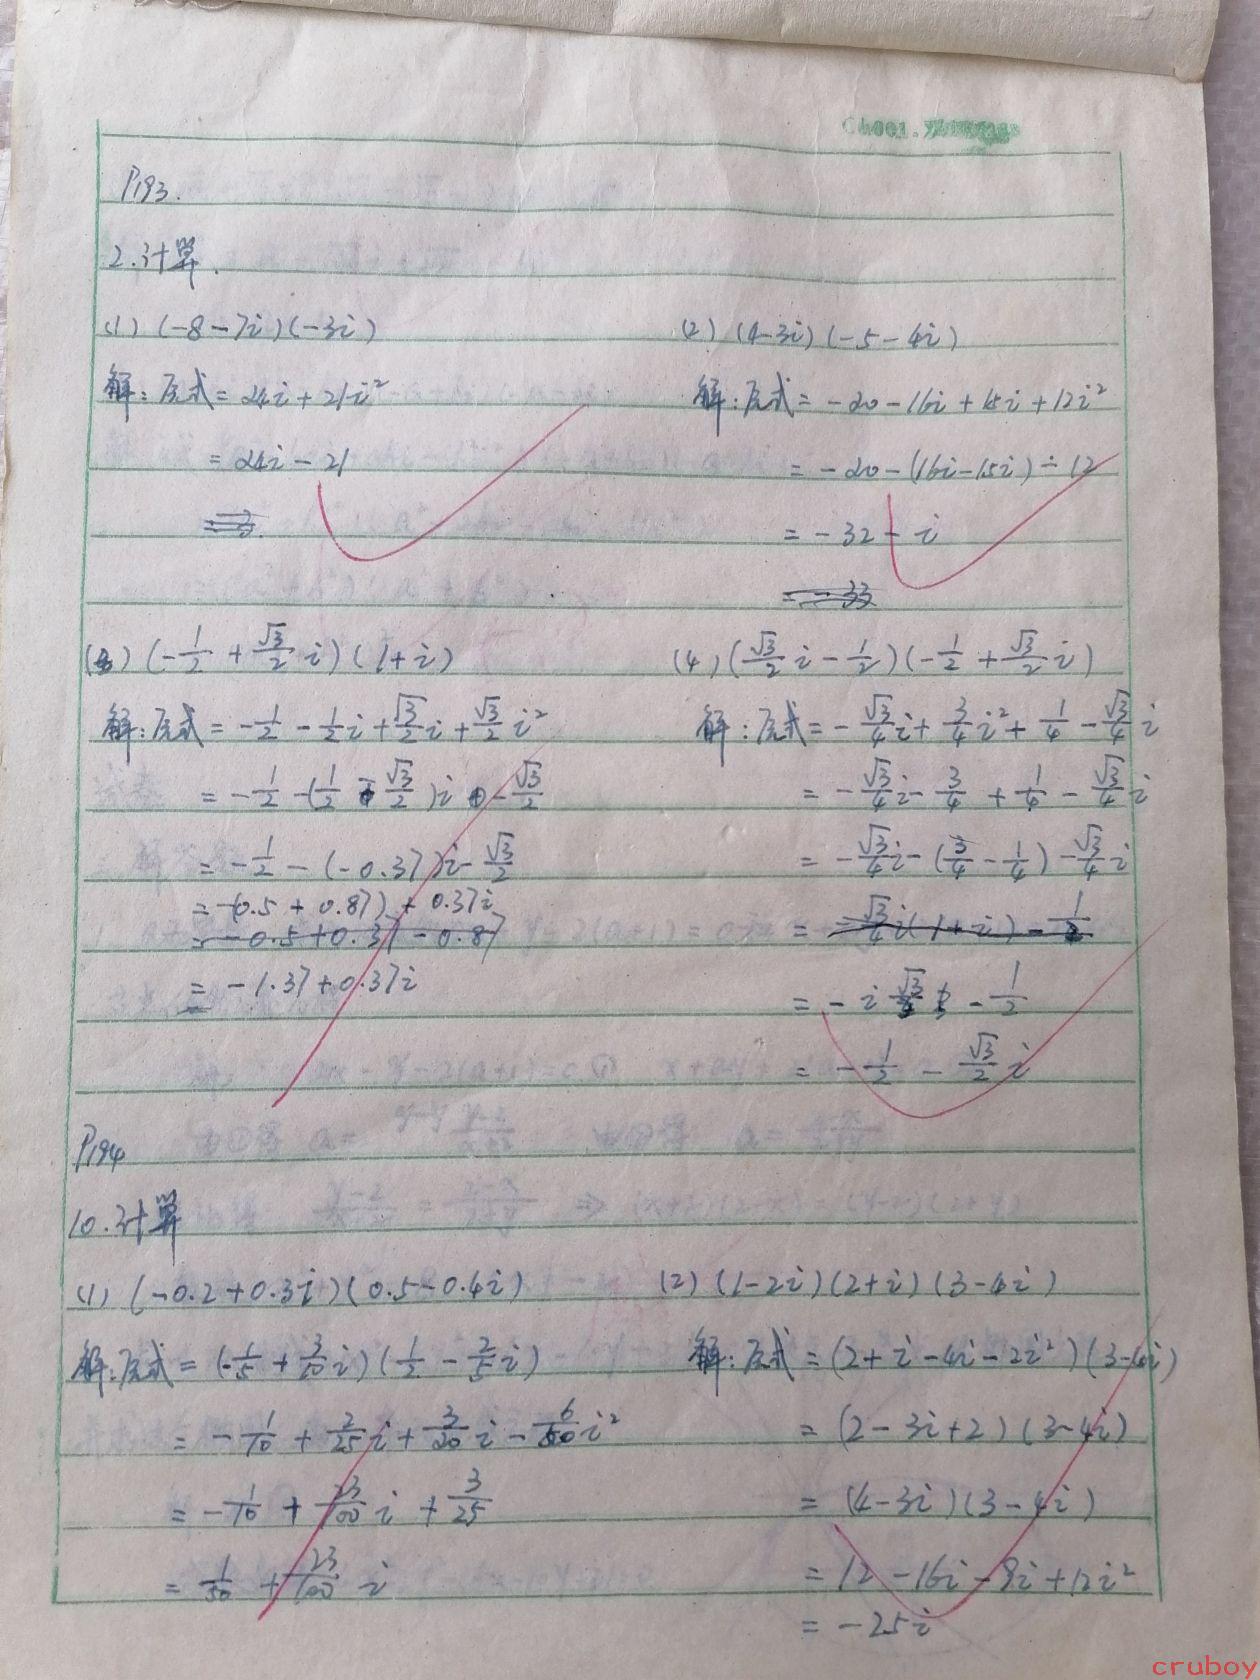 Ch001.
P193.
2.计算.
(1) (-8-7i)(-3i)
解:原式=24i+21i²
=24i-21
(2) (4-3i)(-5-4i)
解:原式=-20-16i+15i+12i²
=-20-(16i-15i)-12
=-32-i
=-33
(3) (-1/2+√3/2 i)(1+i)
解:原式=-1/2-1/2i+√3/2i+√3/2i²
=-1/2-(1/2-√3/2)i-√3/2
=-1/2-(-0.37)i-√3/2
=-(0.5+0.87)+0.37i
=-0.5+0.37-0.87
=-1.37+0.37i
(4) (√3/2 i-1/2)(-1/2+√3/2 i)
解:原式=-√3/4i+3/4i²+1/4-√3/4i
=-√3/4i-3/4+1/4-√3/4i
=-√3/4i-(3/4-1/4)-√3/4i
=√3/4i(1+i)-1/2
=-i√3/2-1/2
=-1/2-√3/2i
P194
10.计算
(1) (-0.2+0.3i)(0.5-0.4i)
解:原式=(-1/5+3/10i)(1/2-2/5i)
=-1/10+2/25i+3/20i-6/50i²
=-1/10+23/100i+3/25
=1/50+23/100i
(2) (1-2i)(2+i)(3-4i)
解:原式=(2+i-4i-2i²)(3-4i)
=(2-3i+2)(3-4i)
=(4-3i)(3-4i)
=12-16i-9i+12i²
=-25i
cruboy